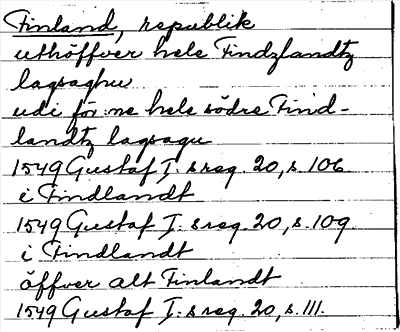 Finland, republik
uthöffver hele Findzlandtz
lagsaghu
udi för:ne hele södre Find-
landtz lagsagu
1549 Gustaf I:s reg. 20, s. 106
i Findlandt
1549 Gustaf I:s reg. 20, s. 109.
i Findlandt
öffver alt Finlandt
1549 Gustaf I:s reg. 20, s. 111.